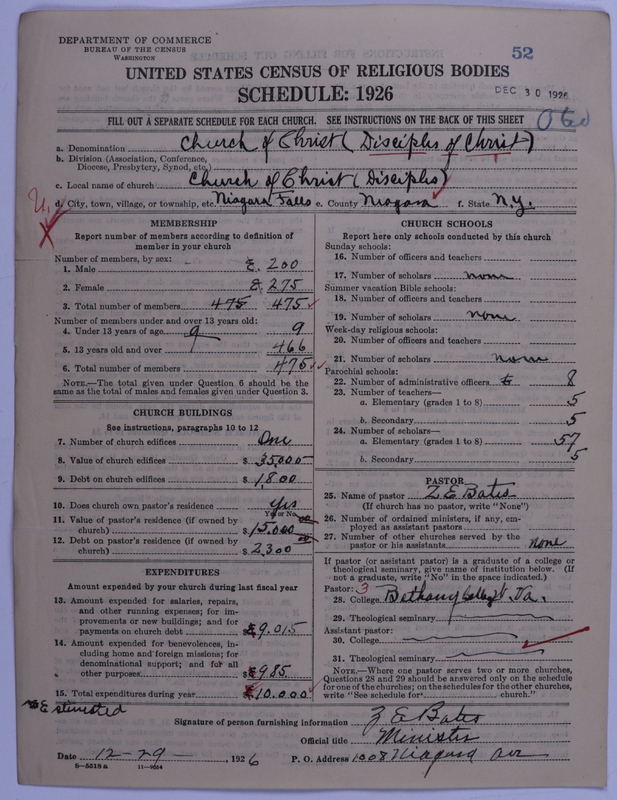 DEPARTMENT OF COMMERCE
BUREAU OF THE CENSUS
WASHINGTON
52
UNITED STATES CENSUS OF RELIGIOUS BODIES
SCHEDULE: 1926
DEC 30 1926
FILL OUT A SEPARATE SCHEDULE FOR EACH CHURCH. SEE INSTRUCTIONS ON THE BACK OF THIS SHEET
a. Denomination Church of Christ (Disciples of Christ)
b. Division (Association, Conference, Diocese, Presbytery, Synod, etc.)
c. Local name of church Church of Christ (Disciples)
d. City, town, village, or township, etc. Niagara Falls e. County Niagara f. State N.Y.
MEMBERSHIP
Report number of members according to definition of member in your church
Number of members, by sex:
1. Male E. 200
2. Female E 275
3. Total number of members 475 475
Number of members under and over 13 years old:
4. Under 13 years of age 9 9
5. 13 years old and over 466
6. Total number of members 475
NOTE.—The total given under Question 6 should be the same as the total of males and females given under Question 3.
CHURCH BUILDINGS
See instructions, paragraphs 10 to 12
7. Number of church edifices One
8. Value of church edifices $ 35000
9. Debt on church edifices $ 1,800
10. Does church own pastor's residence Yes
Yes or No
11. Value of pastor's residence (if owned by church) $ 15,000
12. Debt on pastor's residence (if owned by church) $ 2300
EXPENDITURES
Amount expended by your church during last fiscal year
13. Amount expended for salaries, repairs, and other running expenses; for improvements or new buildings; and for payments on church debt $ 9.015
14. Amount expended for benevolences, including home and foreign missions; for denominational support; and for all other purposes $ 985
15. Total expenditures during year $ 10.000
E stimated
CHURCH SCHOOLS
Report here only schools conducted by this church
Sunday schools:
16. Number of officers and teachers
17. Number of scholars none
Summer vacation Bible schools:
18. Number of officers and teachers
19. Number of scholars none
Week-day religious schools:
20. Number of officers and teachers
21. Number of scholars none
Parochial schools:
22. Number of administrative officers 8
23. Number of teachers—
a. Elementary (grades 1 to 8) 5
b. Secondary 5
24. Number of scholars—
a. Elementary (grades 1 to 8) 57
b. Secondary 5
PASTOR
25. Name of pastor Z E Bates
(If church has no pastor, write "None")
26. Number of ordained ministers, if any, employed as assistant pastors
27. Number of other churches served by the pastor or his assistants none
If pastor (or assistant pastor) is a graduate of a college or theological seminary, give name of institution below. (If not a graduate, write "No" in the space indicated.)
Pastor: 3
28. College Bethany College W. Va.
29. Theological seminary
Assistant pastor:
30. College
31. Theological seminary
NOTE.—Where one pastor serves two or more churches, Questions 28 and 29 should be answered only on the schedule for one of the churches; on the schedules for the other churches, write "See schedule for church."
Signature of person furnishing information Z E Bates
Official title Minister
Date 12-29-, 1926 P. O. Address 1008 Niagara Ave
8-5518a 11-9654